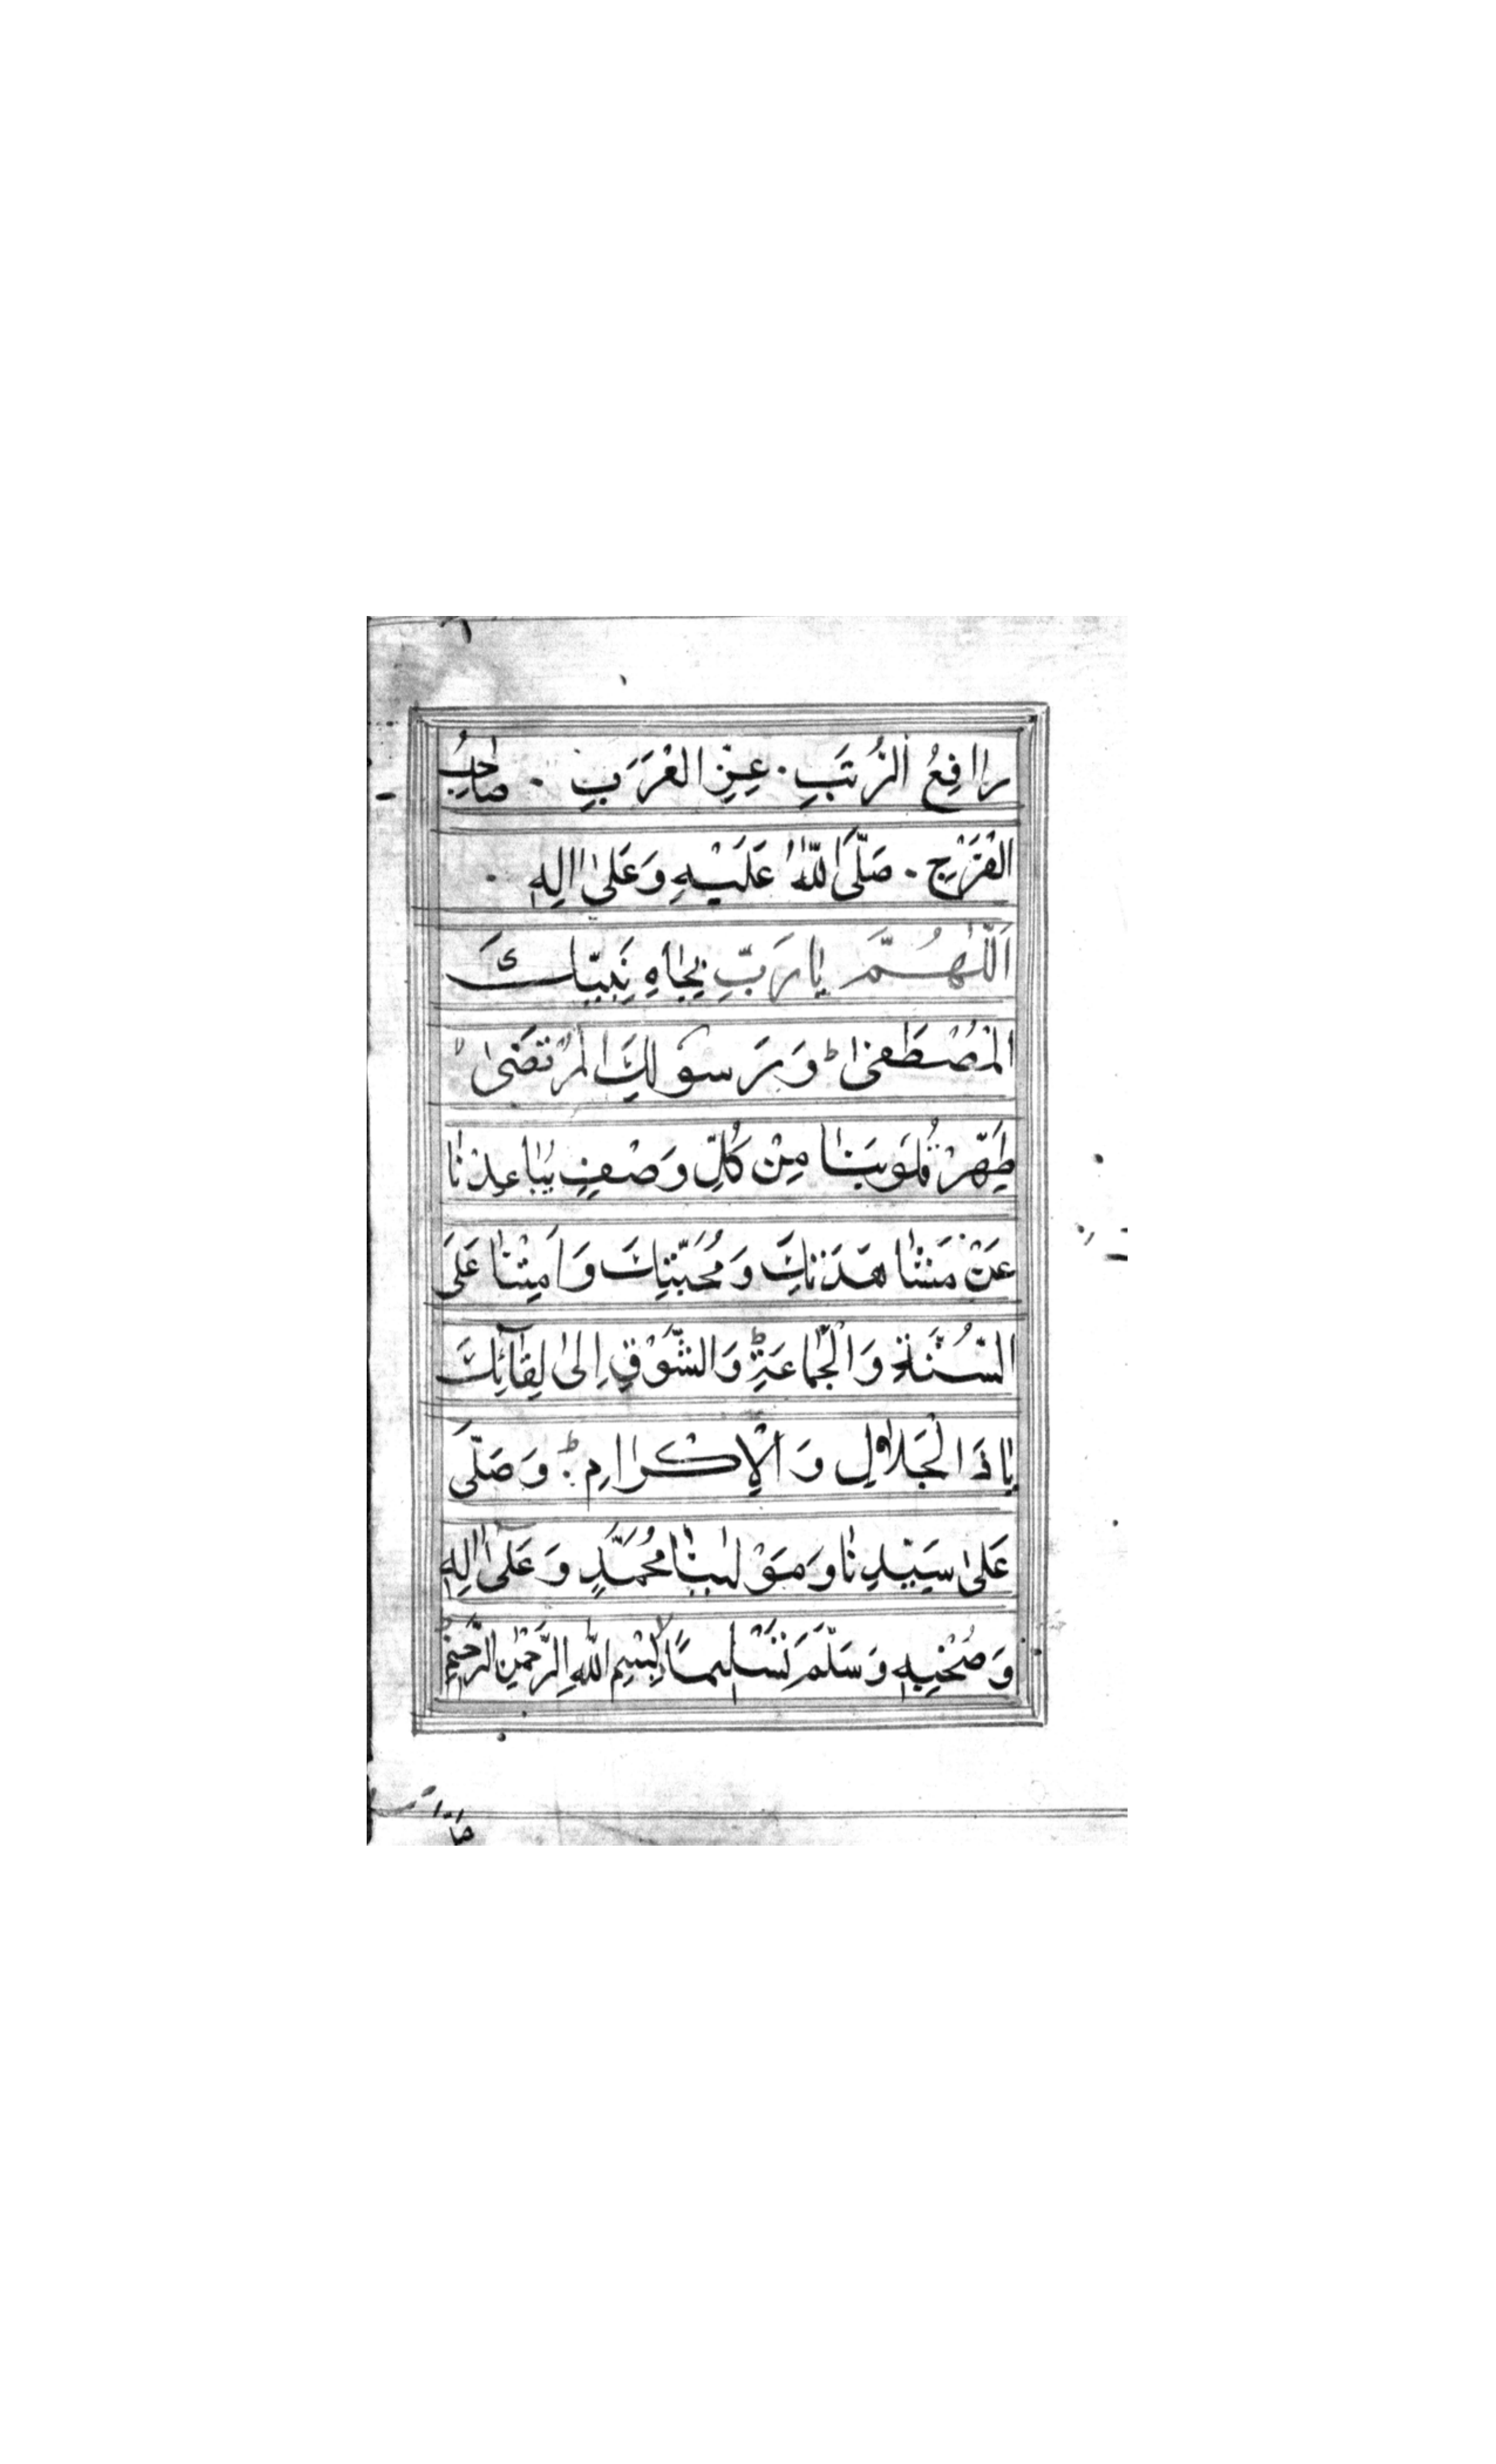 رَاافِعُ الرُّتَبِ . عِزِّ الْعَرَبِ . صَاحِبُ
الْفَرَجِ . صَلَّى اللّٰهُ عَلَيْهِ وَعَلىٰ اٰلِهٖ .
اَللّٰهُمَّ يَا رَبِّ بِجَاهِ نَبِيِّكَ
الْمُصْطَفىٰ ط وَرَسُولِكَ الْمُرْتَضىٰ ط
طَهِّرْ قُلُوبَنَا مِنْ كُلِّ وَصْفٍ يُبَاعِدْنَا
عَنْ مَشَاهَدَتِكَ وَمُحَبَّتِكَ وَاَمِتْنَا عَلَى
السُّنَّةِ وَالْجَمَاعَةِ ط وَالشَّوْقِ اِلىٰ لِقَآئِكَ
يَا ذَا الْجَلَالِ وَالْاِكْرَامِ ط وَصَلَّى
عَلىٰ سَيِّدِنَا وَمَوْلٰينَا مُحَمَّدٍ وَعَلىٰ اٰلِهٖ
وَصُحْبِهٖ وَسَلَّمَ تَسْلِيمًا لا بِسْمِ اللّٰهِ الرَّحْمٰنِ الرَّحِيْمِ